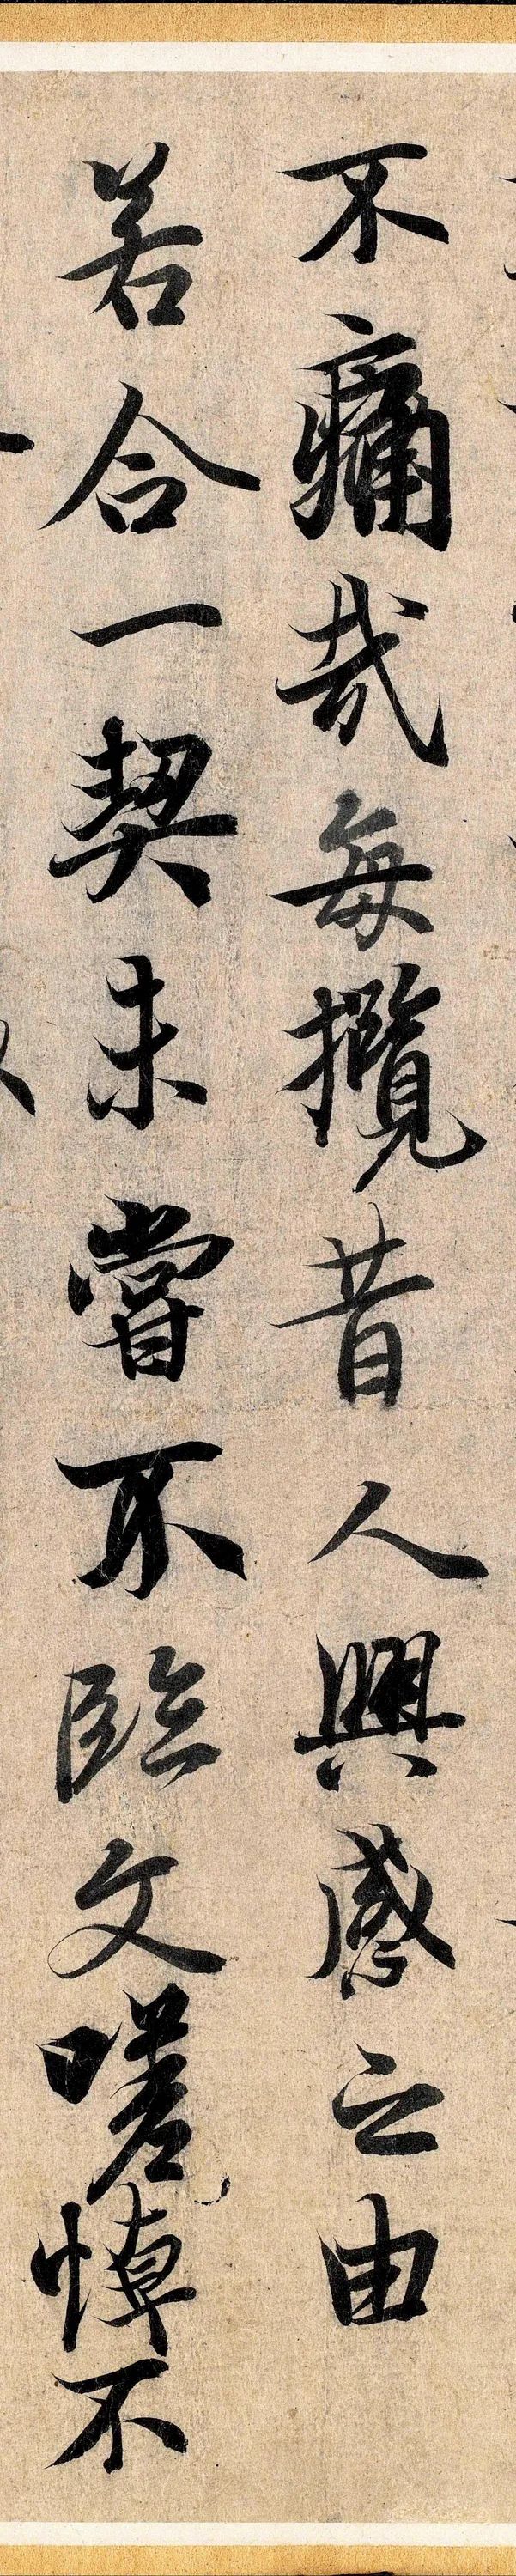 不痛哉每攬昔人興感之由
若合一契未嘗不臨文嗟悼不